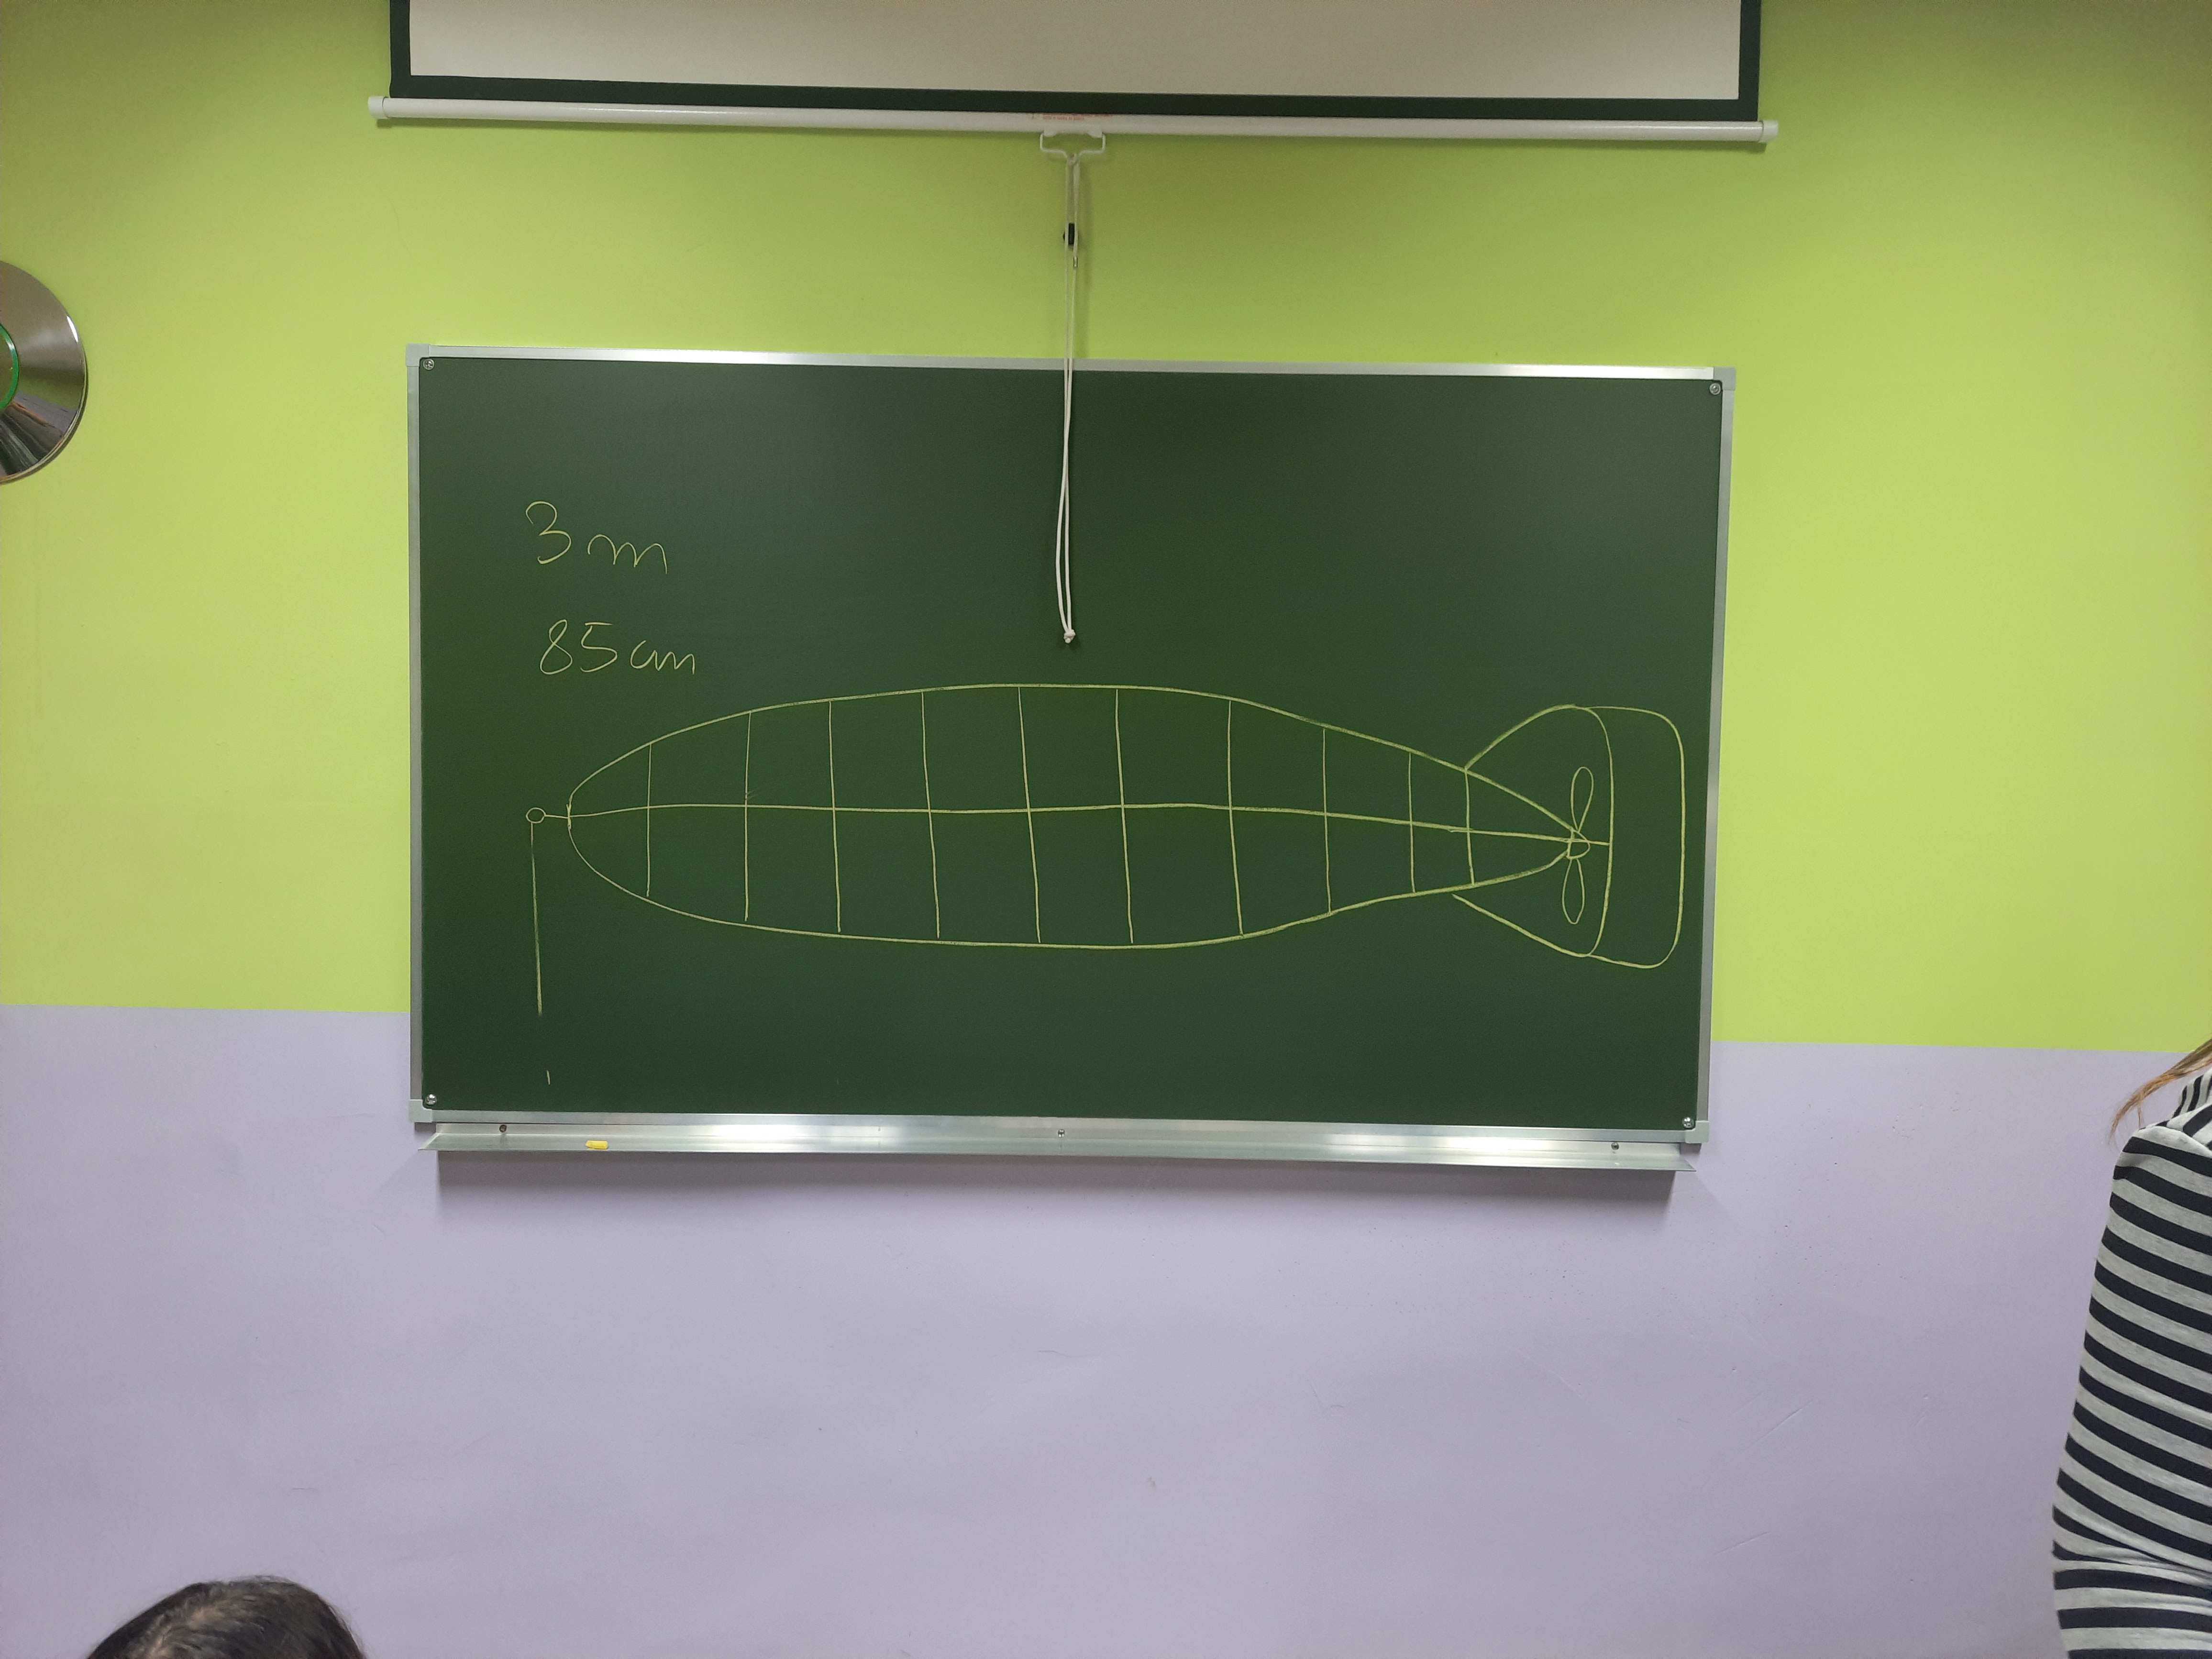 3 m
85 cm